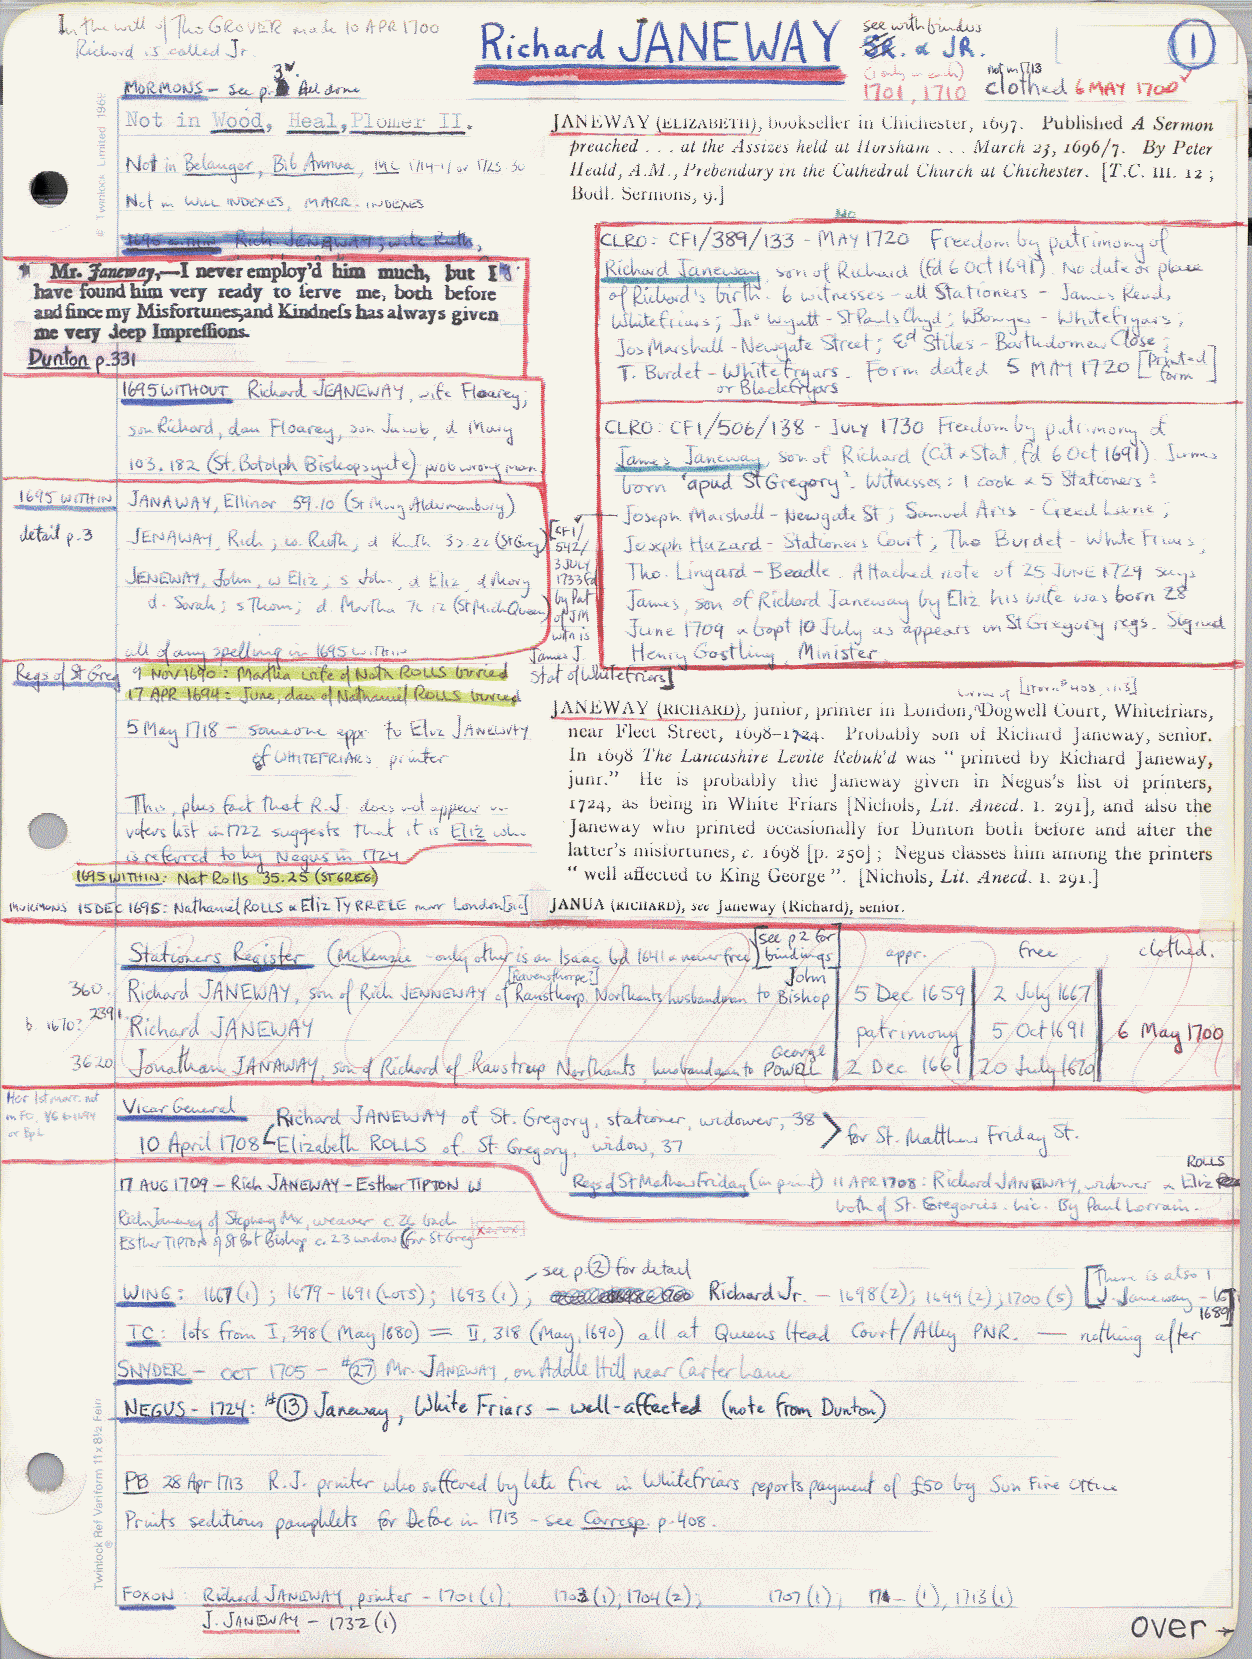 In the will of Tho GROVER made 10 APR 1700
Richard is called Jr.
Richard JANEWAY
see with binders
SR. & JR.
1701, 1710
not in 1713
clothed 6 MAY 1700
1
MORMONS - see p. 3 All done
Not in Wood, Heal, Plomer II.
Not in Belanger, Bib Annua,
Not in WILL INDEXES, MARR. INDEXES
1696 within Rich JANEWAY, wife Ruth,
Mr. Janeway,—I never employ'd him much, but I
have found him very ready to serve me, both before
and since my Misfortunes, and Kindness has always given
me very deep Impressions.
Dunton p.331
1695 WITHOUT Richard JEANEWAY, wife Floarey;
son Richard, dau Floarey, son Jacob, d Mary
103.182 (St. Botolph Bishopsgate) prob wrong man
1695 WITHIN JANAWAY, Ellinor 59.10 (St Mary Aldermanbury)
detail p.3 JENAWAY, Rich; w. Ruth, d Ruth 35.22 (St Greg)
JENEWAY, John, w Eliz; s John, d Eliz, d Mary
d. Sarah; s Thom; d. Martha 76.12 (St Mich Queen)
all of any spelling in 1695 within
[CF1/
542/
3 JULY
1733 fd
by Pat
of JM
witn is
James J.
Stat of Whitefriars]
Regs of St Greg 9 NOV 1690: Martha wife of Nath ROLLS buried
17 APR 1694: June, dau of Nathaniel ROLLS buried
5 May 1718 - someone appr. to Eliz JANEWAY
of WHITEFRIARS printer
This, plus fact that R.J. does not appear in
voters list in 1722 suggests that it is Eliz who
is referred to by Negus in 1724
1695 WITHIN: Nat Rolls 35.25 (ST GREG)
MORMONS 15 DEC 1695: Nathaniel ROLLS & Eliz TYRRELE marr London [sic]
JANEWAY (ELIZABETH), bookseller in Chichester, 1697. Published A Sermon
preached . . . at the Assizes held at Horsham . . . March 23, 1696/7. By Peter
Heald, A.M., Prebendary in the Cathedral Church at Chichester. [T.C. III. 12 ;
Bodl. Sermons, 9.]
CLRO: CF1/389/133 - MAY 1720 Freedom by patrimony of
Richard Janeway, son of Richard (fd 6 Oct 1691). No date or place
of Richard's birth. 6 witnesses - all Stationers - James Read,
Whitefriars; Jno Wyatt - St Pauls Chyd; W Bowyer - Whitefryars;
Jos Marshall - Newgate Street; Ed Stiles - Bartholomew Close;
T. Burdet - Whitefryars. Form dated 5 MAY 1720 [Printed form]
or Blackfryars
CLRO: CF1/506/138 - JULY 1730 Freedom by patrimony of
James Janeway, son of Richard (Cit & Stat, fd 6 Oct 1691). James
born 'apud St Gregory'. Witnesses: 1 cook & 5 Stationers:
Joseph Marshall - Newgate St; Samuel Aris - Creed Lane;
Joseph Hazard - Stationers Court; Tho Burdet - White Friars;
Tho. Lingard - Beadle. Attached note of 25 JUNE 1724 says
James, son of Richard Janeway by Eliz his wife was born 28
June 1709 & bapt 10 July as appears in St Gregory regs. Signed
Henry Gostling, Minister
JANEWAY (RICHARD), junior, printer in London, Dogwell Court, Whitefriars,
near Fleet Street, 1698–1724. Probably son of Richard Janeway, senior.
In 1698 The Lancashire Levite Rebuk'd was " printed by Richard Janeway,
junr." He is probably the Janeway given in Negus's list of printers,
1724, as being in White Friars [Nichols, Lit. Anecd. I. 291], and also the
Janeway who printed occasionally for Dunton both before and after the
latter's misfortunes, c. 1698 [p. 250] ; Negus classes him among the printers
" well affected to King George ". [Nichols, Lit. Anecd. I. 291.]
JANUA (RICHARD), see Janeway (Richard), senior.
Stationers Register (McKenzie - only other is an Isaac bd 1641 & never free) [see p2 for bindings] appr. free clothed.
360. Richard JANEWAY, son of Rich JENNEWAY of Raunsthorp. [Ravensthorpe?] Northants husbandman to John Bishop 5 Dec 1659 2 July 1667
b 1670? 2391. Richard JANEWAY patrimony 5 Oct 1691 6 May 1700
3620 Jonathan JANAWAY, son of Richard of Raustrup Northants, husbandman to George POWELL 2 Dec 1661 20 July 1670
Her 1st marr. not
Vicar General
10 April 1708
Richard JANEWAY of St. Gregory, stationer, widower, 38
Elizabeth ROLLS of St Gregory, widow, 37
for St. Matthew Friday St.
17 AUG 1709 - Rich JANEWAY - Esther TIPTON W
Rich Janeway of Stepheny Mx, weaver c. 26 bach
Esther TIPTON of St Bot Bishop c. 23 widow (for St Greg
xerox
Regs of St Mathew Friday (in print) 11 APR 1708: Richard JANEWAY, widower & Eliz ROLLS
both of St. Gregories. Lic. By Paul Lorrain.
see p. 2 for detail
WING: 1667 (1); 1679-1691 (LOTS); 1693 (1); Richard Jr. - 1698 (2); 1699 (2); 1700 (5) [There is also 1
J. Janeway - 1689]
TC: lots from I, 398 (May 1680) = II, 318 (May, 1690) all at Queens Head Court/Alley PNR. — nothing after
SNYDER - OCT 1705 - #27 Mr. JANEWAY, on Addle Hill near Carter Lane
NEGUS - 1724: #13 Janeway, White Friars - well-affected (note from Dunton)
PB 28 Apr 1713 R.J. printer who suffered by late fire in Whitefriars reports payment of £50 by Sun Fire Office
Prints seditious pamphlets for Defoe in 1713 - see Corresp. p. 408.
FOXON: Richard JANEWAY, printer - 1701 (1); 1703 (1); 1704 (2); 1707 (1); 171- (1), 1713 (1)
J. JANEWAY - 1732 (1)
over →
© Twinlock Limited 1968
Twinlock Ref Variform 11 x 8½ Fein